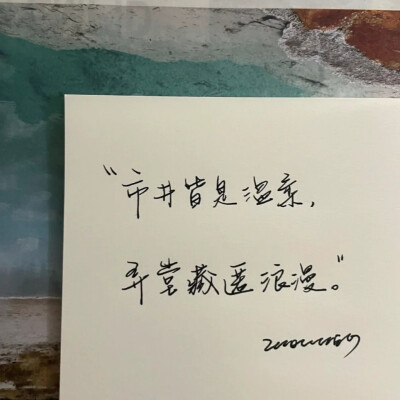 “市井皆是温柔，
弄堂藏匿浪漫。”